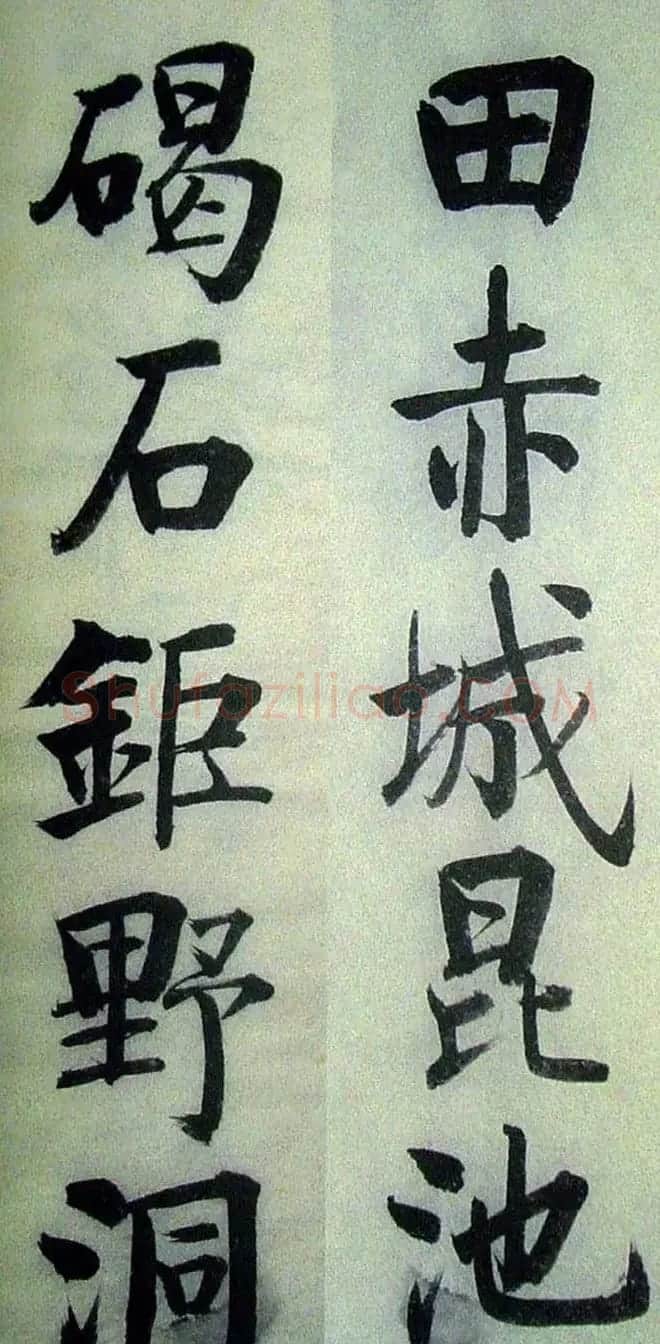 田赤城昆池
碣石鉅野洞
Shufaziliao.COM